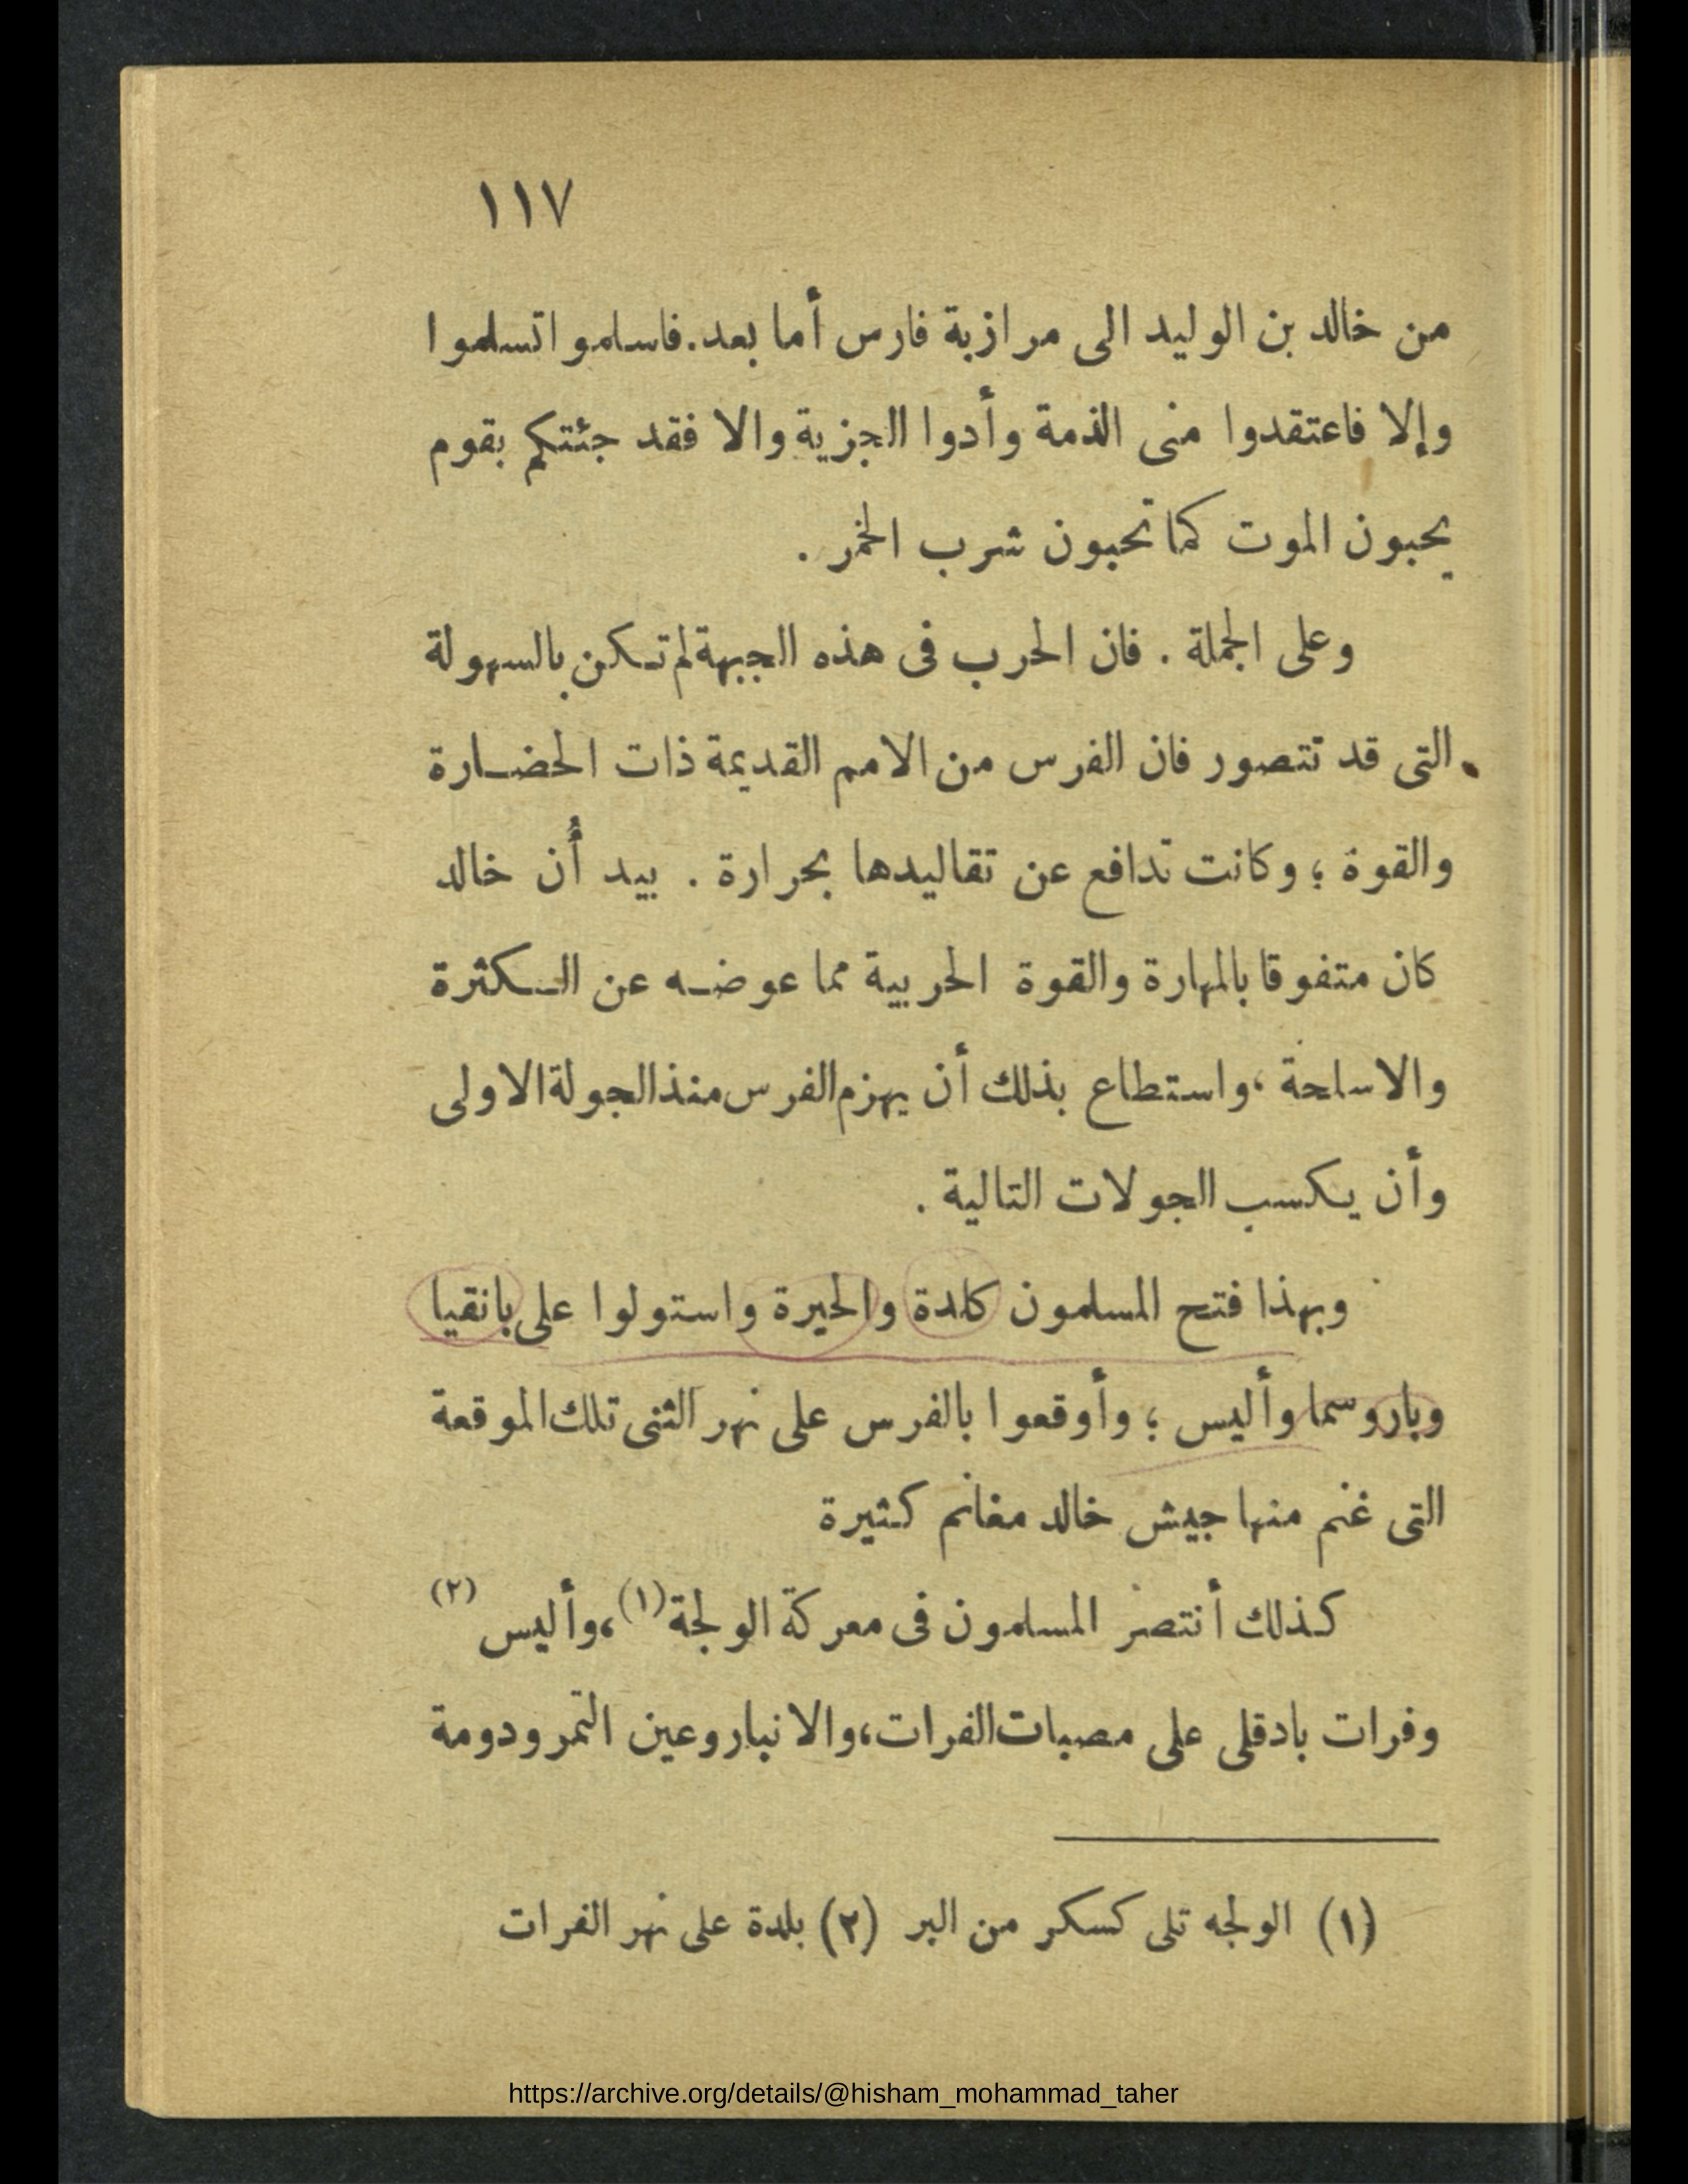 ١١٧
من خالد بن الوليد الى مرازبة فارس أما بعد. فاسلموا تسلموا
وإلا فاعتقدوا منى الذمة وأدوا الجزية والا فقد جئتكم بقوم
يحبون الموت كما تحبون شرب الخمر .
وعلى الجملة . فان الحرب فى هذه الجبهة لم تكن بالسهولة
التى قد تتصور فان الفرس من الامم القديمة ذات الحضارة
والقوة ؛ وكانت تدافع عن تقاليدها بحرارة . بيد أن خالد
كان متفوقا بالمهارة والقوة الحربية مما عوضه عن الكثرة
والاسلحة ،واستطاع بذلك أن يهزم الفرس منذ الجولة الاولى
وأن يكسب الجولات التالية .
وبهذا فتح المسلمون كلدة والحيرة واستولوا على بانقيا
وباروسما وأليس ؛ وأوقعوا بالفرس على نهر الثنى تلك الموقعة
التى غنم منها جيش خالد مغانم كثيرة
كذلك أنتصر المسلمون فى معركة الولجة (١) ،وأليس (٢)
وفرات بادقلى على مصبات الفرات، والانبار وعين التمر ودومة
(١) الولجه تلى كسكر من البر (٢) بلدة على نهر الفرات
https://archive.org/details/@hisham_mohammad_taher